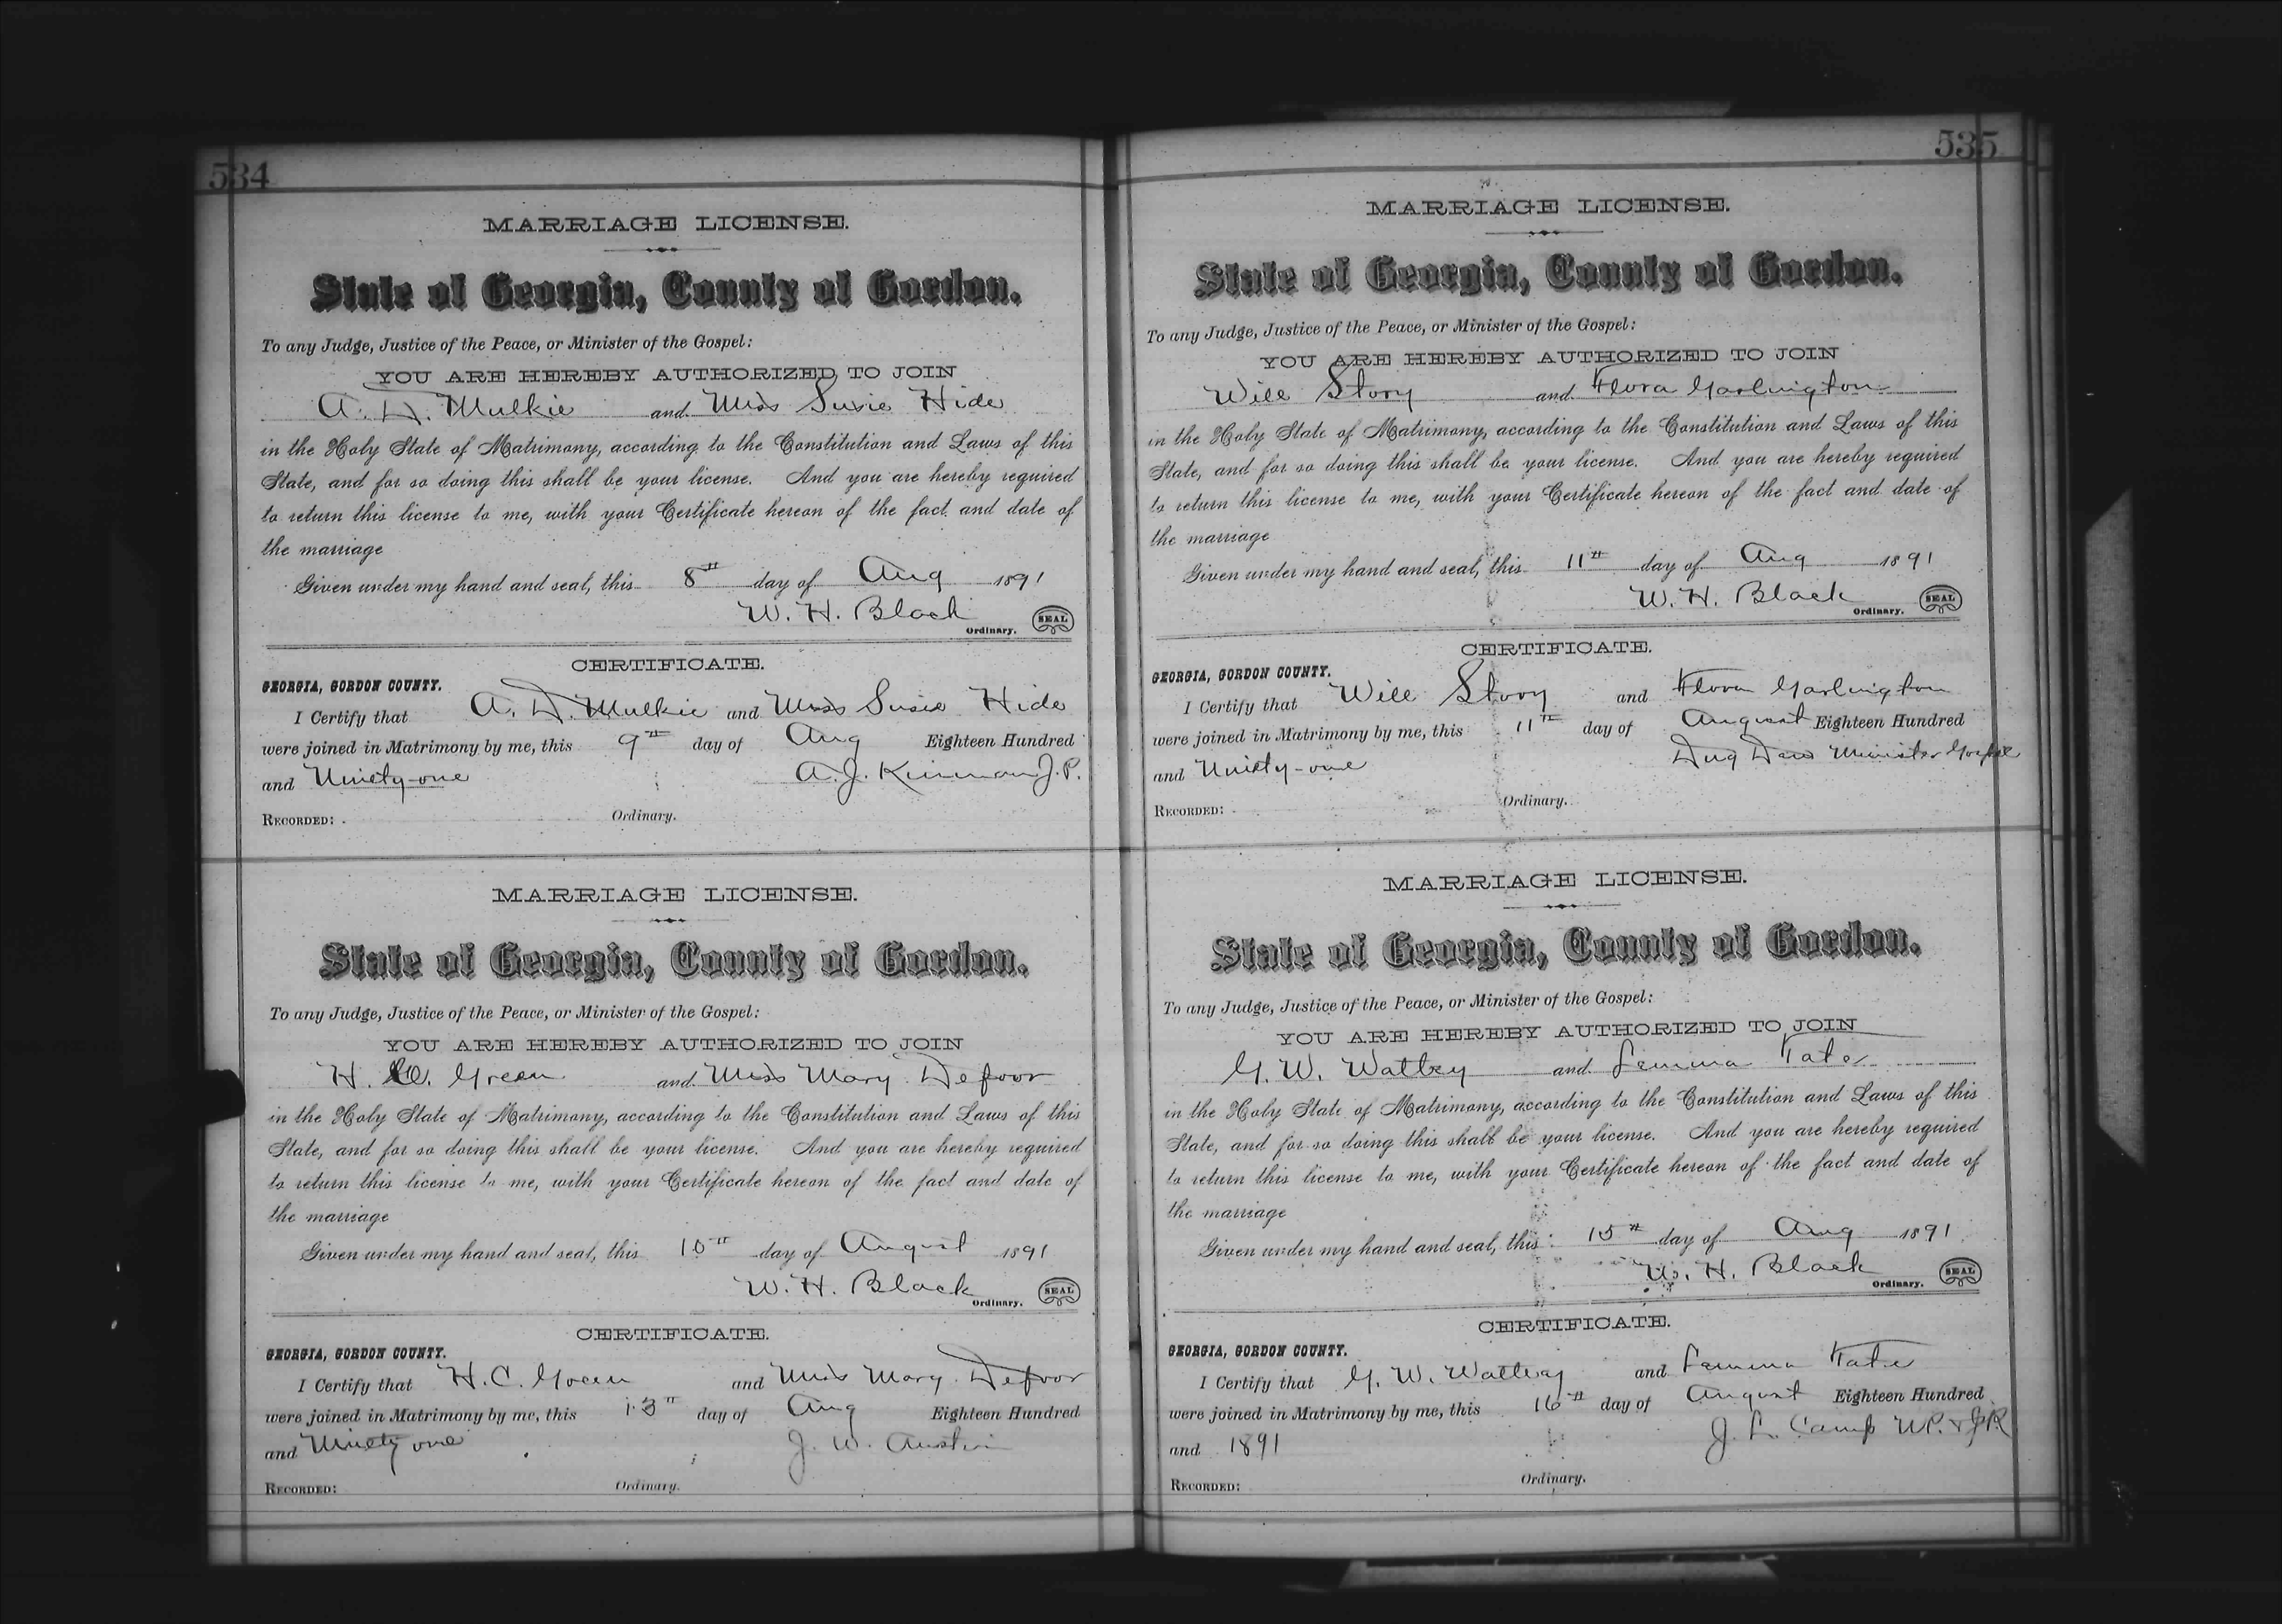 534
MARRIAGE LICENSE.
State of Georgia, County of Gordon.
To any Judge, Justice of the Peace, or Minister of the Gospel:
YOU ARE HEREBY AUTHORIZED TO JOIN
A. D. Mulkie and Miss Susie Hide
in the Holy State of Matrimony, according to the Constitution and Laws of this
State, and for so doing this shall be your license. And you are hereby required
to return this license to me, with your Certificate hereon of the fact and date of
the marriage
Given under my hand and seal, this 8th day of Aug 1891
W. H. Black
Ordinary. SEAL
CERTIFICATE.
GEORGIA, GORDON COUNTY.
I Certify that A. D. Mulkie and Miss Susie Hide
were joined in Matrimony by me, this 9th day of Aug Eighteen Hundred
and Ninety-one A. J. Kinman J.P.
RECORDED: Ordinary.
MARRIAGE LICENSE.
State of Georgia, County of Gordon.
To any Judge, Justice of the Peace, or Minister of the Gospel:
YOU ARE HEREBY AUTHORIZED TO JOIN
H. C. Green and Miss Mary Defoor
in the Holy State of Matrimony, according to the Constitution and Laws of this
State, and for so doing this shall be your license. And you are hereby required
to return this license to me, with your Certificate hereon of the fact and date of
the marriage
Given under my hand and seal, this 10th day of August 1891
W. H. Black
Ordinary. SEAL
CERTIFICATE.
GEORGIA, GORDON COUNTY.
I Certify that H. C. Green and Miss Mary Defoor
were joined in Matrimony by me, this 13th day of Aug Eighteen Hundred
and Ninety one J. W. Austin
RECORDED: Ordinary.
535
MARRIAGE LICENSE.
State of Georgia, County of Gordon.
To any Judge, Justice of the Peace, or Minister of the Gospel:
YOU ARE HEREBY AUTHORIZED TO JOIN
Will Story and Flora Garlington
in the Holy State of Matrimony, according to the Constitution and Laws of this
State, and for so doing this shall be your license. And you are hereby required
to return this license to me, with your Certificate hereon of the fact and date of
the marriage
Given under my hand and seal, this 11th day of Aug 1891
W. H. Black
Ordinary. SEAL
CERTIFICATE.
GEORGIA, GORDON COUNTY.
I Certify that Will Story and Flora Garlington
were joined in Matrimony by me, this 11th day of August Eighteen Hundred
and Ninety-one Minister Gospel
RECORDED: Ordinary.
MARRIAGE LICENSE.
State of Georgia, County of Gordon.
To any Judge, Justice of the Peace, or Minister of the Gospel:
YOU ARE HEREBY AUTHORIZED TO JOIN
G. W. Watley and Lemma Tate
in the Holy State of Matrimony, according to the Constitution and Laws of this
State, and for so doing this shall be your license. And you are hereby required
to return this license to me, with your Certificate hereon of the fact and date of
the marriage
Given under my hand and seal, this 15th day of Aug 1891
W. H. Black
Ordinary. SEAL
CERTIFICATE.
GEORGIA, GORDON COUNTY.
I Certify that G. W. Watley and Lemma Tate
were joined in Matrimony by me, this 16th day of August Eighteen Hundred
and 1891 J. L. Camp
RECORDED: Ordinary.